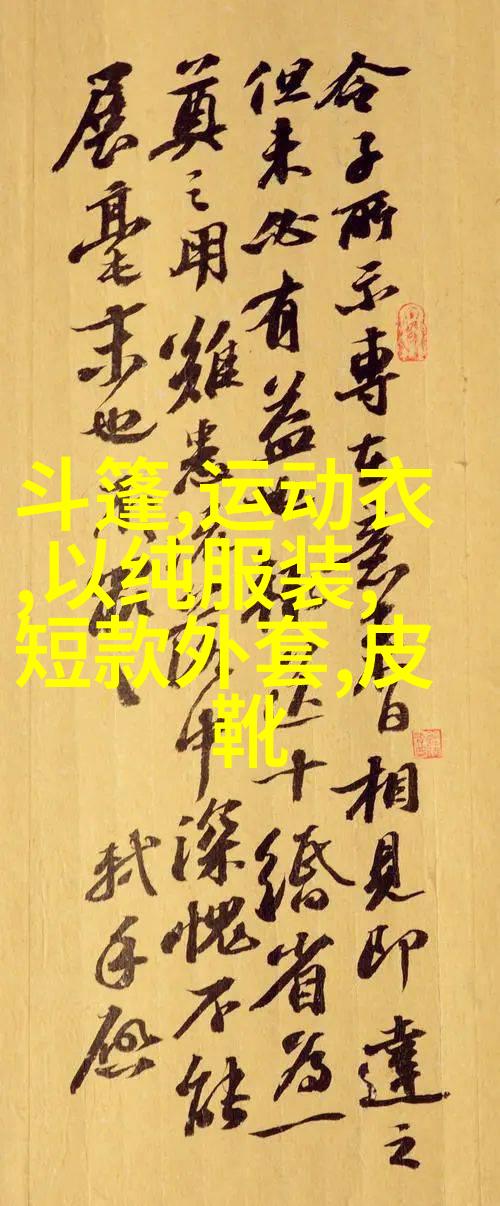 令子所示專在意日相見即達之
但未必有益十緡省為一
奠之用中深愧不能
展毫末也
軾手啟
斗篷,运动衣
,以纯服装,
短款外套,皮
靴